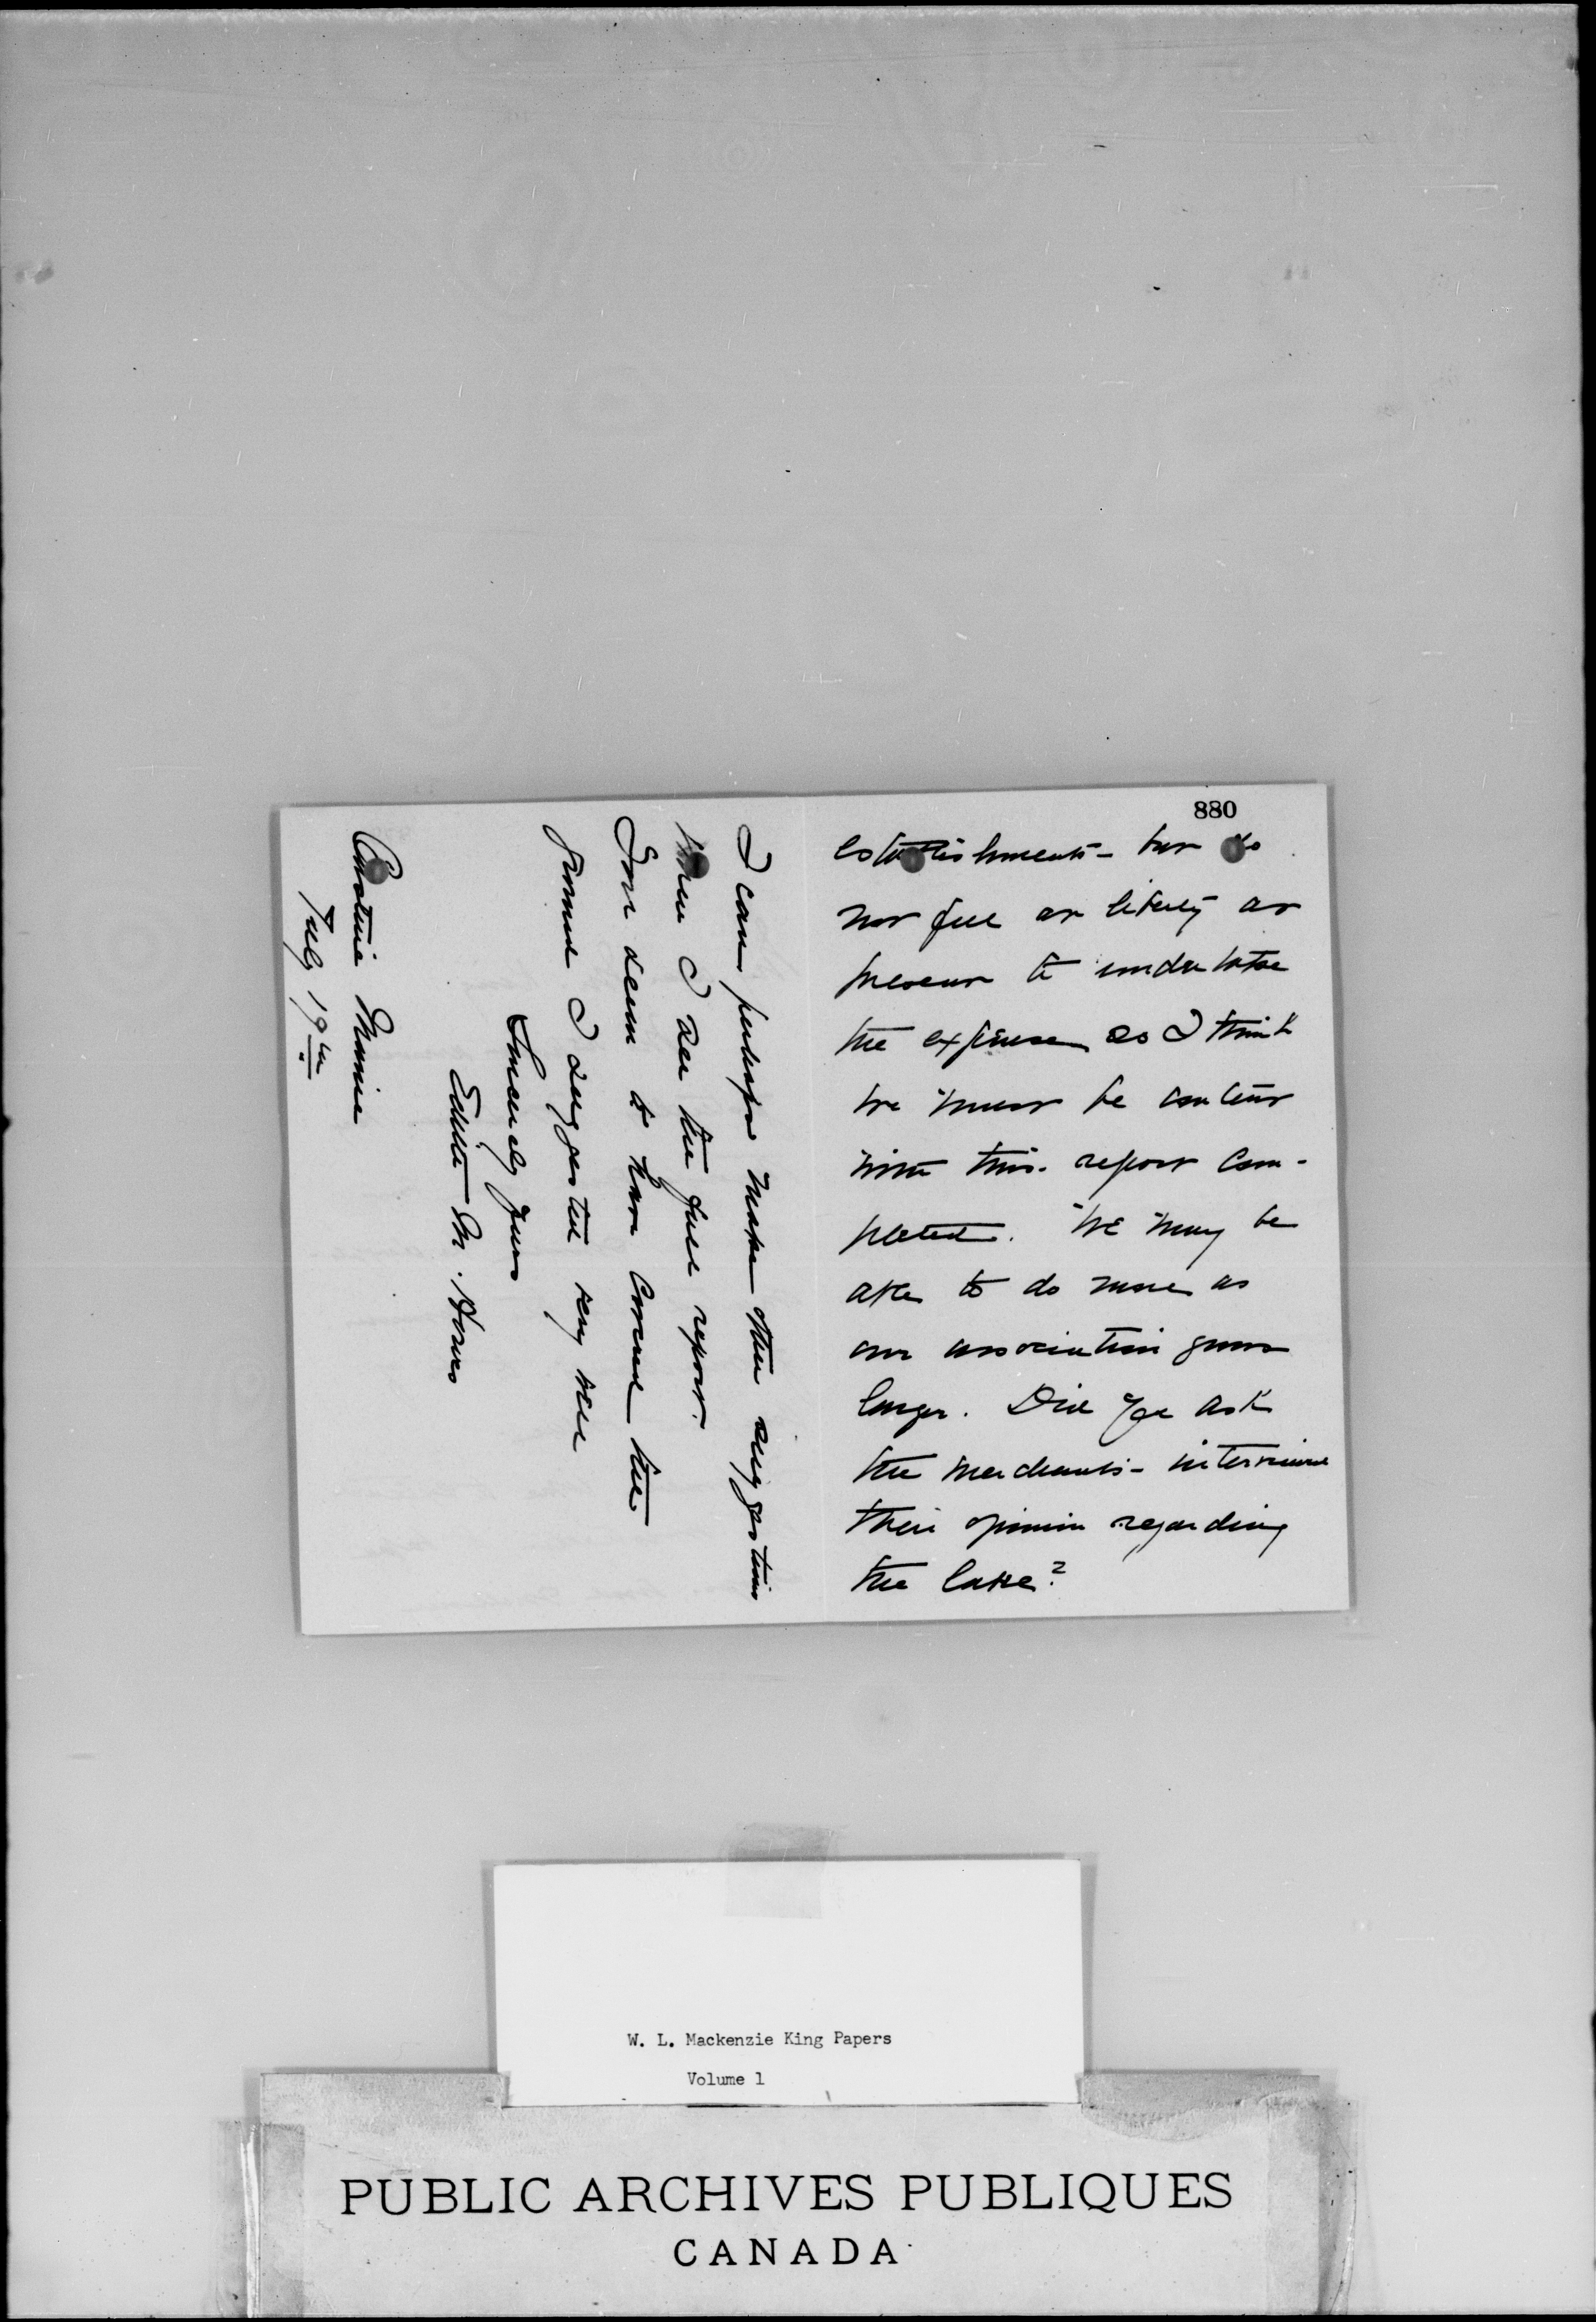 880
establishments - but do
not feel at liberty at
present to undertake
the expense so I think
we must be content
with this report com-
pleted. We may be
able to do more as
our association grows
larger. Did you ask
the merchants - interviewed
their opinion regarding
the label?
I can perhaps make other suggestions
when I see the full report.
You seem to have covered the
ground I suggested very well
Sincerely yours
Edith M. Howes
Castine Maine
July 19th
W. L. Mackenzie King Papers
Volume 1
PUBLIC ARCHIVES PUBLIQUES
CANADA